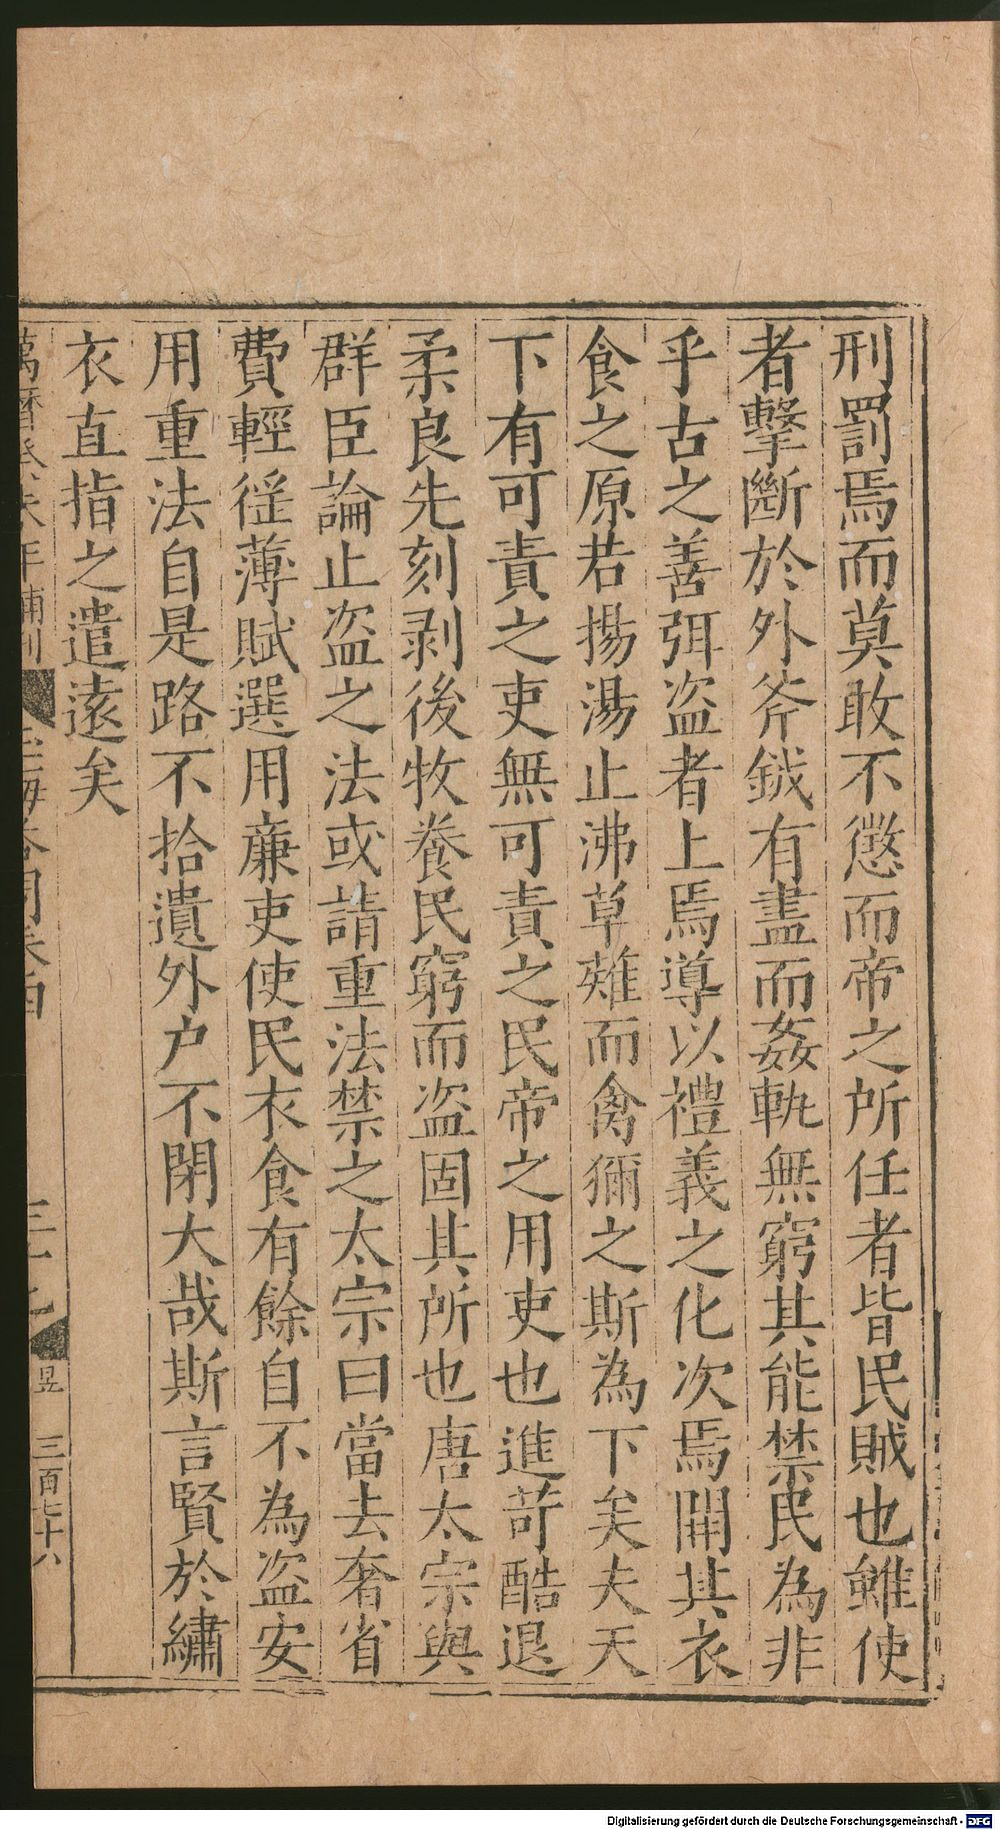 刑罰焉而莫敢不懲而帝之所任者皆民賊也雖使
者擊斷於外斧鉞有盡而姦軌無窮其能禁民為非
乎古之善弭盜者上焉導以禮義之化次焉開其衣
食之原若揚湯止沸草薙而禽獮之斯為下矣夫天
下有可責之吏無可責之民帝之用吏也進苛酷退
柔良先刻剥後牧養民窮而盜固其所也唐太宗與
群臣論止盜之法或請重法禁之太宗曰當去奢省
費輕徭薄賦選用廉吏使民衣食有餘自不為盜安
用重法自是路不拾遺外户不閉大哉斯言賢於繡
衣直指之遣遠矣
萬曆癸未年補刊
卷四
昱 三百七十八
Digitalisierung gefördert durch die Deutsche Forschungsgemeinschaft - DFG